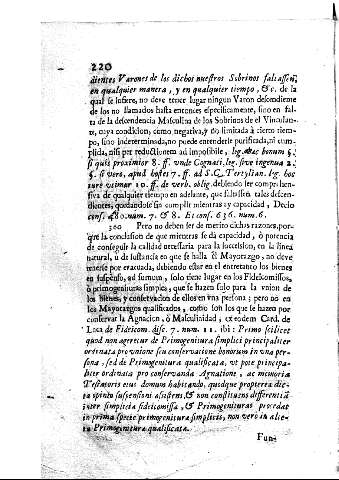 220
dientes Varones de los dichos nuestros Sobrinos faltassen,
en qualquier manera, y en qualquier tiempo, &c. de la
qual se infiere, no deve tener lugar ningun Varon descendiente
de los no llamados hasta entonces especificamente, sino en fal-
ta de la descendencia Masculina de los Sobrinos del Vinculan-
te, cuya condicion, como negativa, y no limitada à cierto tiem-
po, sino indeterminada, no puede entenderse purificada, ni cum-
plida, nisi per reductionem ad impossibile, leg. hæc
si quis proximior 8. ff. unde Cognati, leg. sive ingenua 2.
§. si verò, apud hostes 7. ff. ad S. C. Tertylian. leg. hoc
iure utimur 10. ff. de verb. oblig. debiendo ser comprehen-
siva de qualquier tiempo en adelante, que faltassen tales descen-
dientes, quedandose sin cumplir mientras ay capacidad, Decio
cons. 480. num. 7. & 8. Et cons. 636. num. 6.
300 Pero no deben ser de merito dichas razones, por-
que la conclusion de que mientras se dà capacidad, ò potencia
de conseguir la calidad necessaria para la succession, en la linea
natural, ù de sustancia en que se halla el Mayorazgo, no deve
tenerse por evacuada, debiendo estar en el entretanto los bienes
en suspenso, ad summum, solo tiene lugar en los Fideicomissos,
ò primogenituras simples, que se hazen solo para la union de
los bienes, y conservacion de ellos en una persona; pero no en
los Mayorazgos qualificados, como son los que se hazen por
conservar la Agnacion, ò Masculinidad, ex eodem Card. de
Luca de Fidricom. disc. 7. num. 11. ibi: Primo scilicet
quod non ageretur de Primogenitura simplici principaliter
ordinata pro unione seu conservatione bonorum in una per-
sona, sed de Primogenitura qualificata, ut pote principa-
liter ordinata pro conservanda Agnatione, ac memoria
Testatoris eius domum habitando, quidque propterea dic-
ta spinto suspensioni assistens, & non constituens differentiã
inter simplicia fideicomissa, & Primogenituras procedat
in prima specie primogenitura simplicis, non verò in alte-
ra Primogenitura qualificata.
Fun-